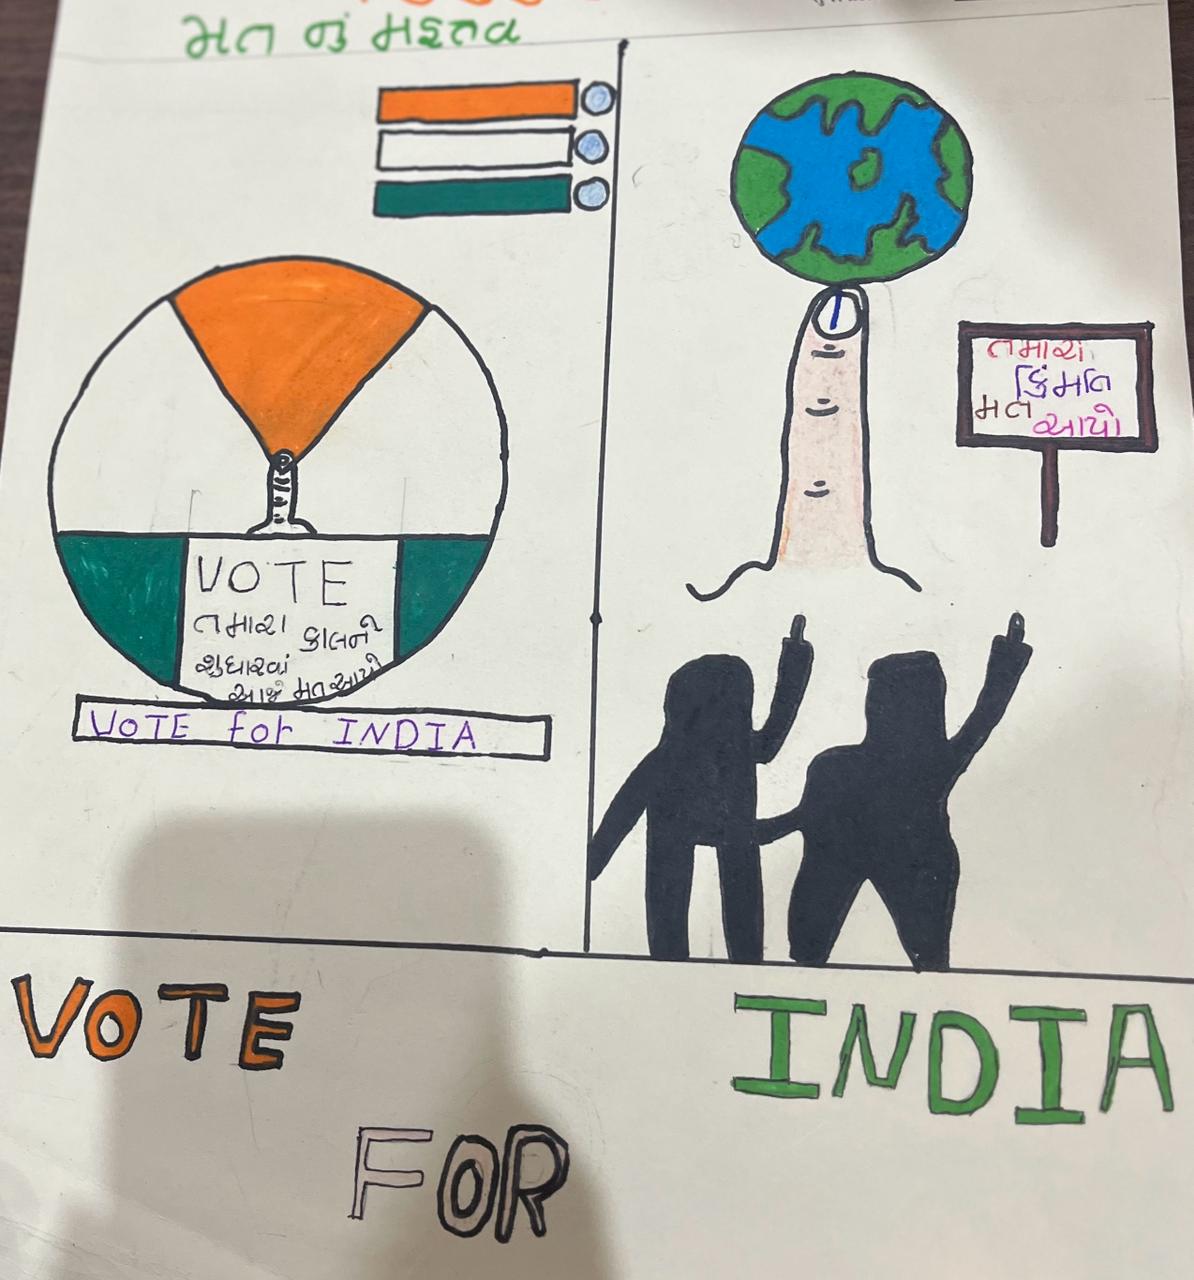 મત નું મહત્વ
તમારા
કિંમતિ
મત આપો
VOTE
તમારા કાલને
સુધારવાં
આજે મત આપો
VOTE for INDIA
VOTE
INDIA
FOR